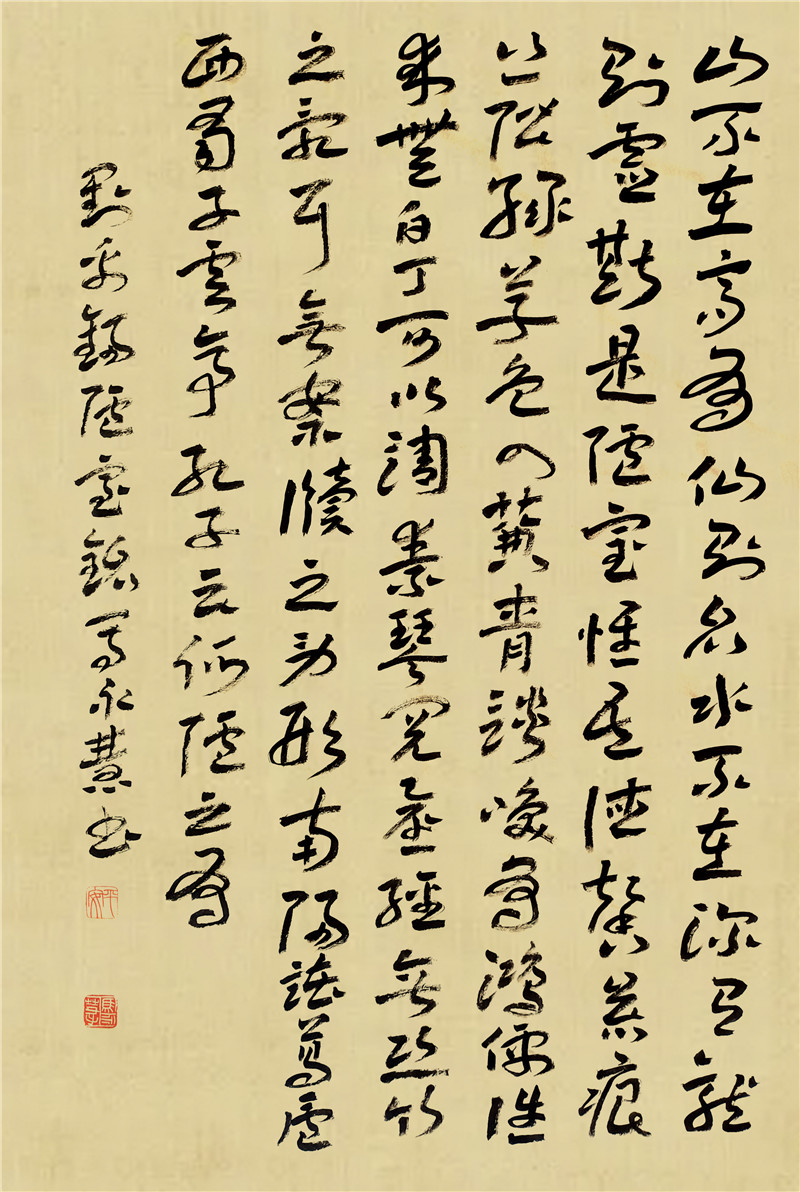 山不在高為仙則名水不在深有龍
則靈斯是陋室惟吾德馨苔痕
上階綠草色入簾青談咲為鴻儒往
來無白丁可以調素琴閱金經無絲竹
之亂耳無案牘之勞形南陽諸葛廬
西蜀子雲亭孔子云何陋之為
劉禹錫陋室銘馬永慧書